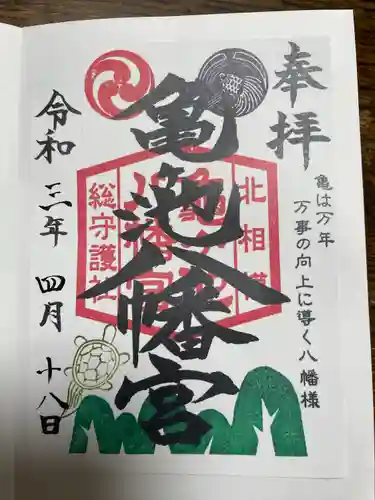 奉拝
亀は万年
万事の向上に導く八幡様
北相模
総守護社
亀ヶ池八幡宮
令和三年四月十八日